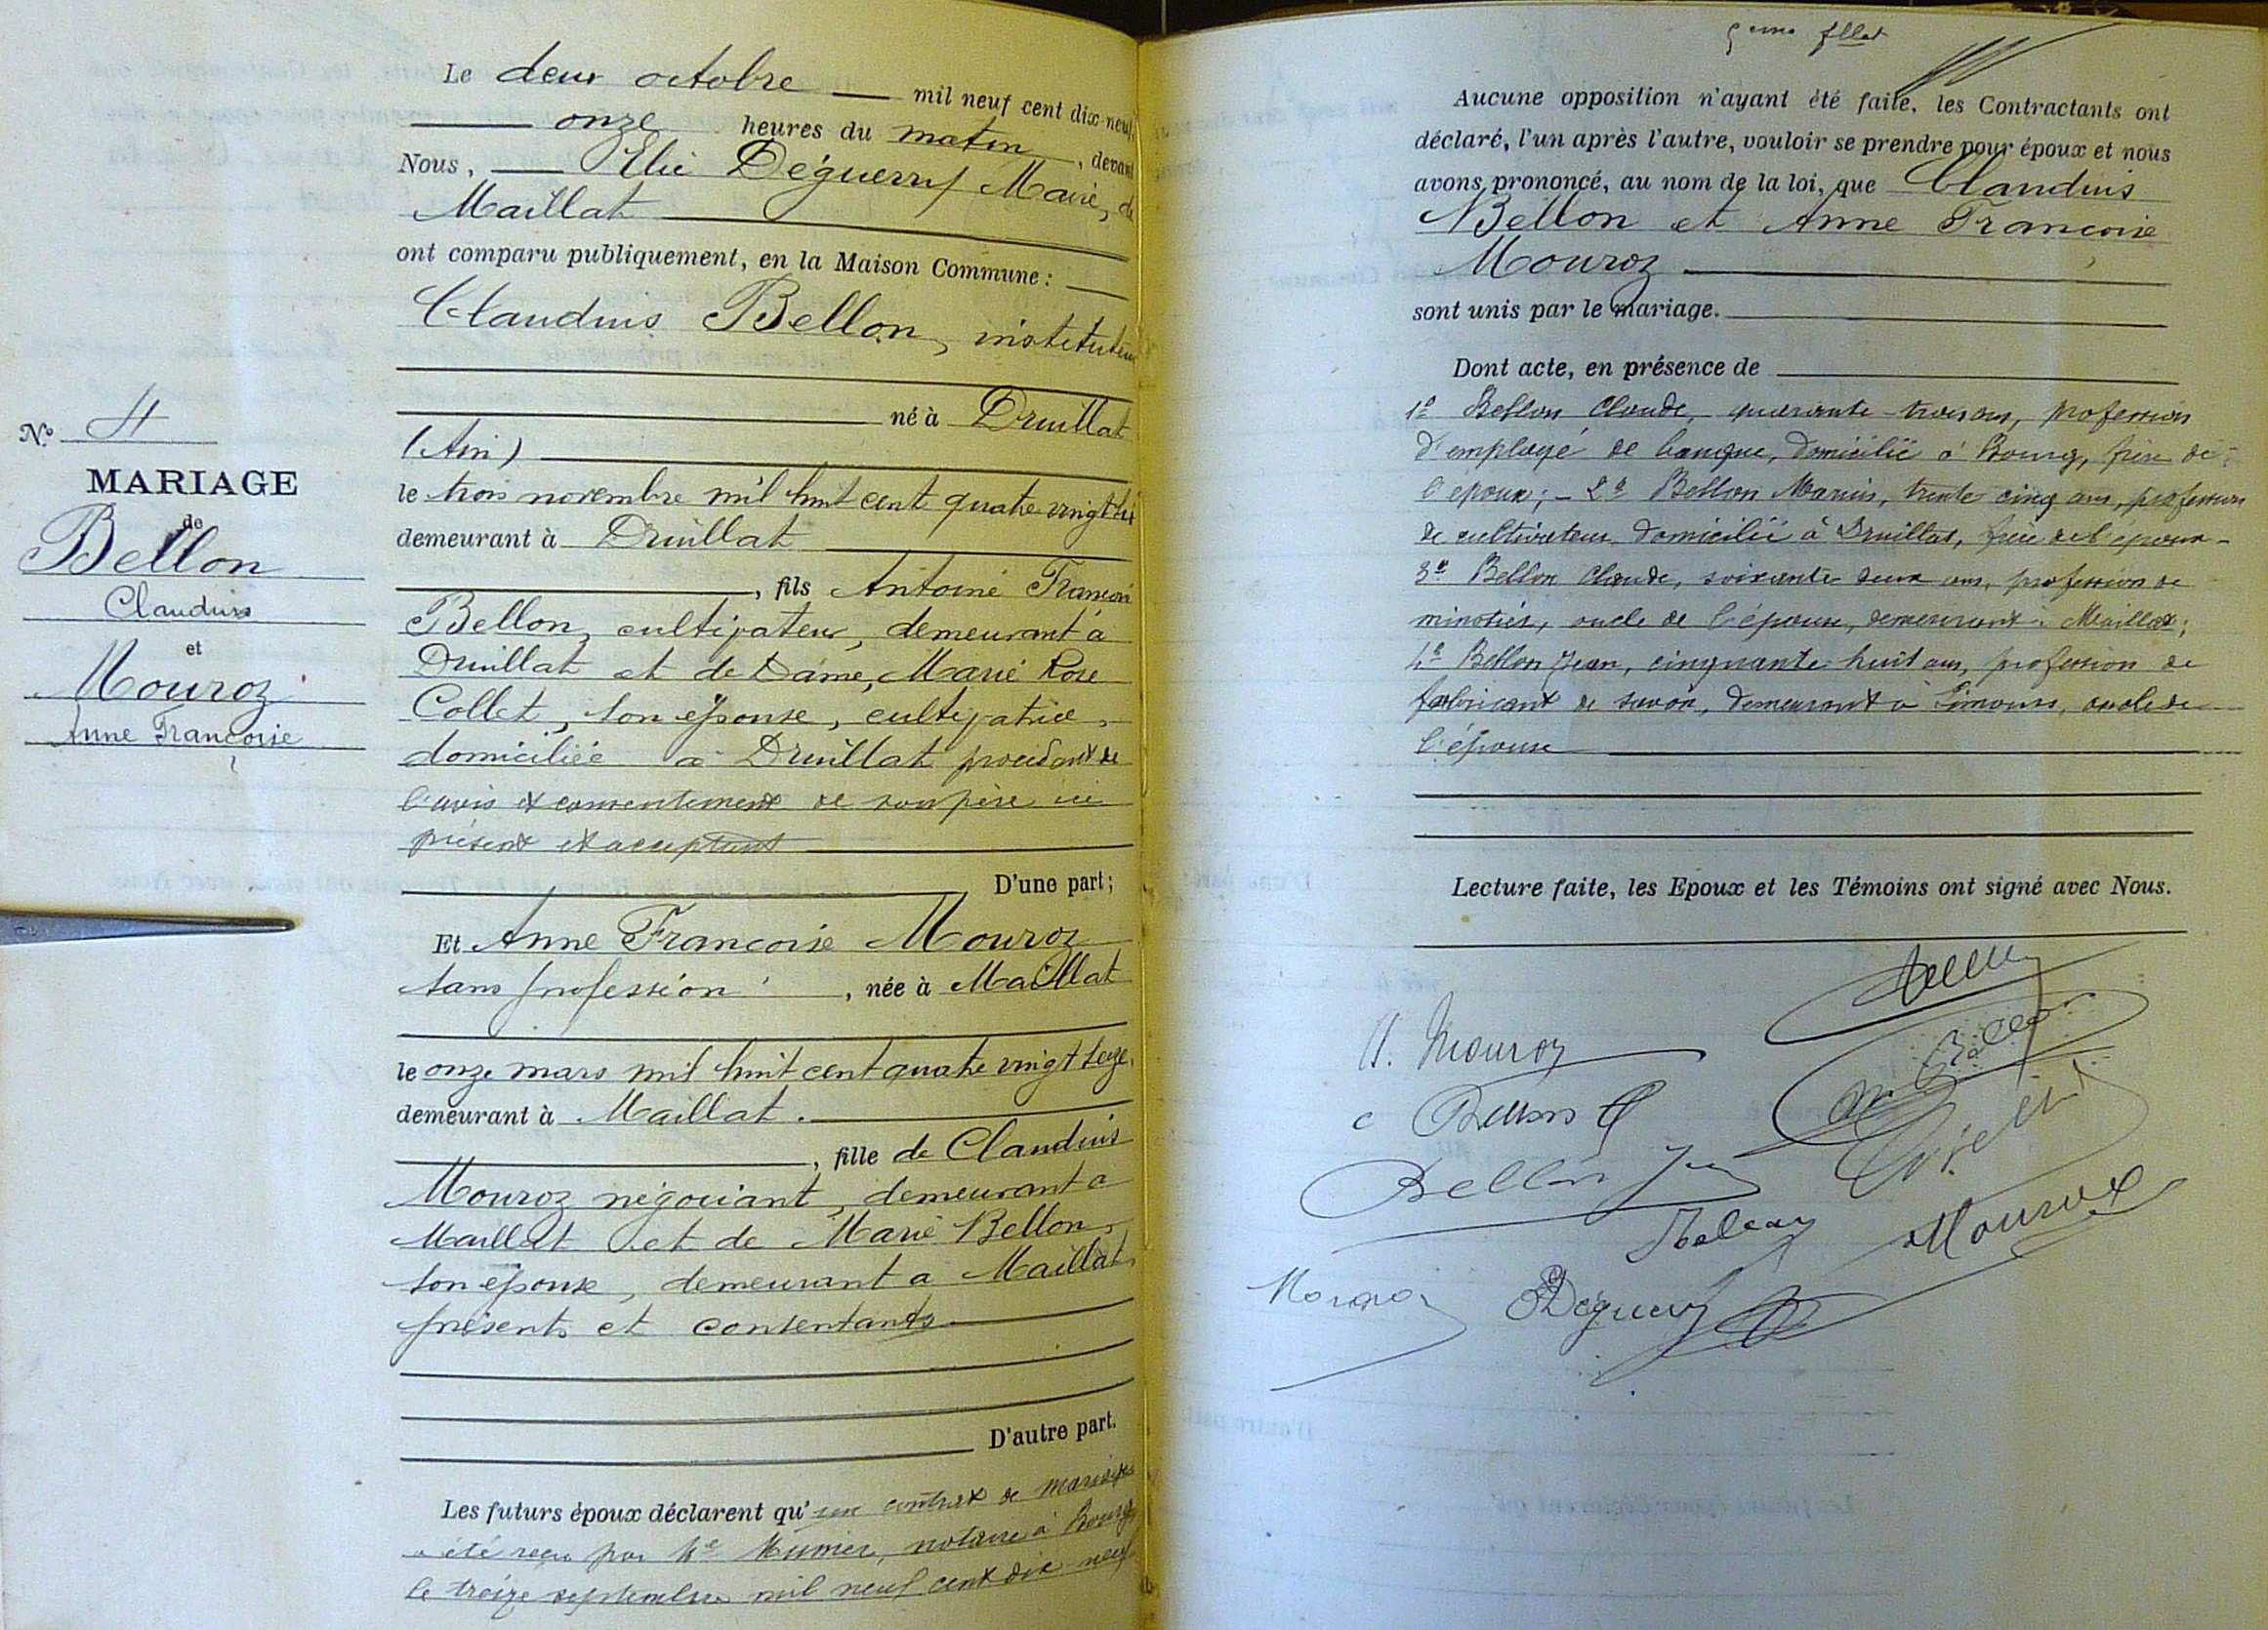 Le deux octobre mil neuf cent dix-neuf,
onze heures du matin, devant
Nous, Elie Déguerry Maire, de
Maillat
ont comparu publiquement, en la Maison Commune :
Claudius Bellon, instituteur
né à Druillat
(Ain)
le trois novembre mil huit cent quatre vingt
demeurant à Druillat
, fils Antoine François
Bellon, cultivateur, demeurant à
Druillat et de Dame, Marie Rose
Collet, son épouse, cultivatrice,
domiciliée à Druillat procédant de
l'avis et consentement de son père ici
présent et acceptant
D'une part ;
Et Anne Françoise Mouroz
sans profession, née à Maillat
le onze mars mil huit cent quatre vingt seize,
demeurant à Maillat.
, fille de Claudius
Mouroz négociant, demeurant a
Maillat et de Marie Bellon,
son épouse, demeurant a Maillat,
présents et consentants
D'autre part.
Les futurs époux déclarent qu'un contrat de mariage
a été reçu par Me notaire à Bourg
le treize septembre mil neuf cent dix neuf
N° 4
MARIAGE
de
Bellon
Claudius
et
Mouroz
Anne Françoise
5eme fllet
Aucune opposition n'ayant été faite, les Contractants ont
déclaré, l'un après l'autre, vouloir se prendre pour époux et nous
avons prononcé, au nom de la loi, que Claudius
Bellon et Anne Françoise
Mouroz
sont unis par le mariage.
Dont acte, en présence de
1° Bellon Claude, quarante-trois ans, profession
d'employé de banque, domicilié à Bourg, frère de
l'époux ; - 2° Bellon Marius, trente cinq ans, profession
de cultivateur domicilié à Druillat, frère de l'époux -
3° Bellon Claude, soixante deux ans, profession de
minotier, oncle de l'épouse, demeurant à Maillat ;
4° Bellon Jean, cinquante huit ans, profession de
fabricant de savon, demeurant à oncle de
l'épouse
Lecture faite, les Epoux et les Témoins ont signé avec Nous.
A. Mouroz
Bellon
Bellon
Mouroz
Déguerry